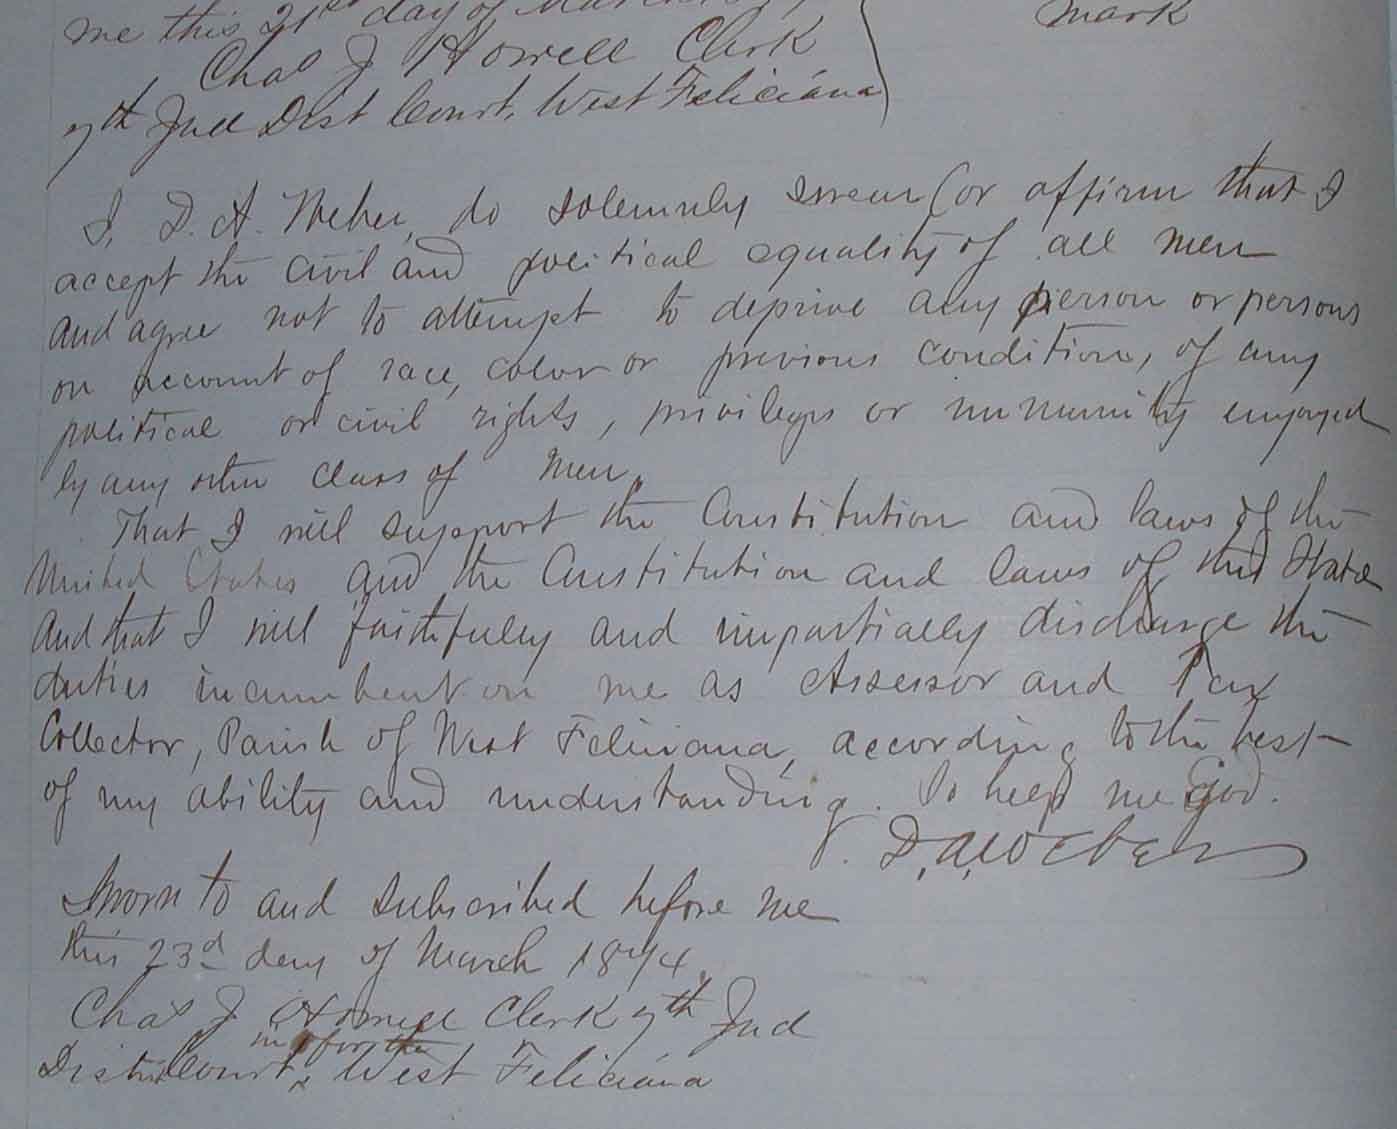 me this 21st day of March
mark
Chas J Howell Clerk
7th Jud Dist Court, West Feliciana
I, D. A. Weber, do solemnly swear (or affirm that I
accept the civil and political equality of all men
and agree not to attempt to deprive any person or persons
on account of race, color or previous condition, of any
political or civil rights, privileges or immunity enjoyed
by any other class of men.
That I will support the Constitution and laws of the
United States and the Constitution and laws of this State
and that I will faithfully and impartially discharge the
duties incumbent on me as Assessor and Tax
Collector, Parish of West Feliciana, according to the best
of my ability and understanding. So help me God.
D. A. Weber
Sworn to and subscribed before me
this 23d day of March 1874.
Chas J Howell Clerk 7th Jud
in & for the
Dist Court, West Feliciana